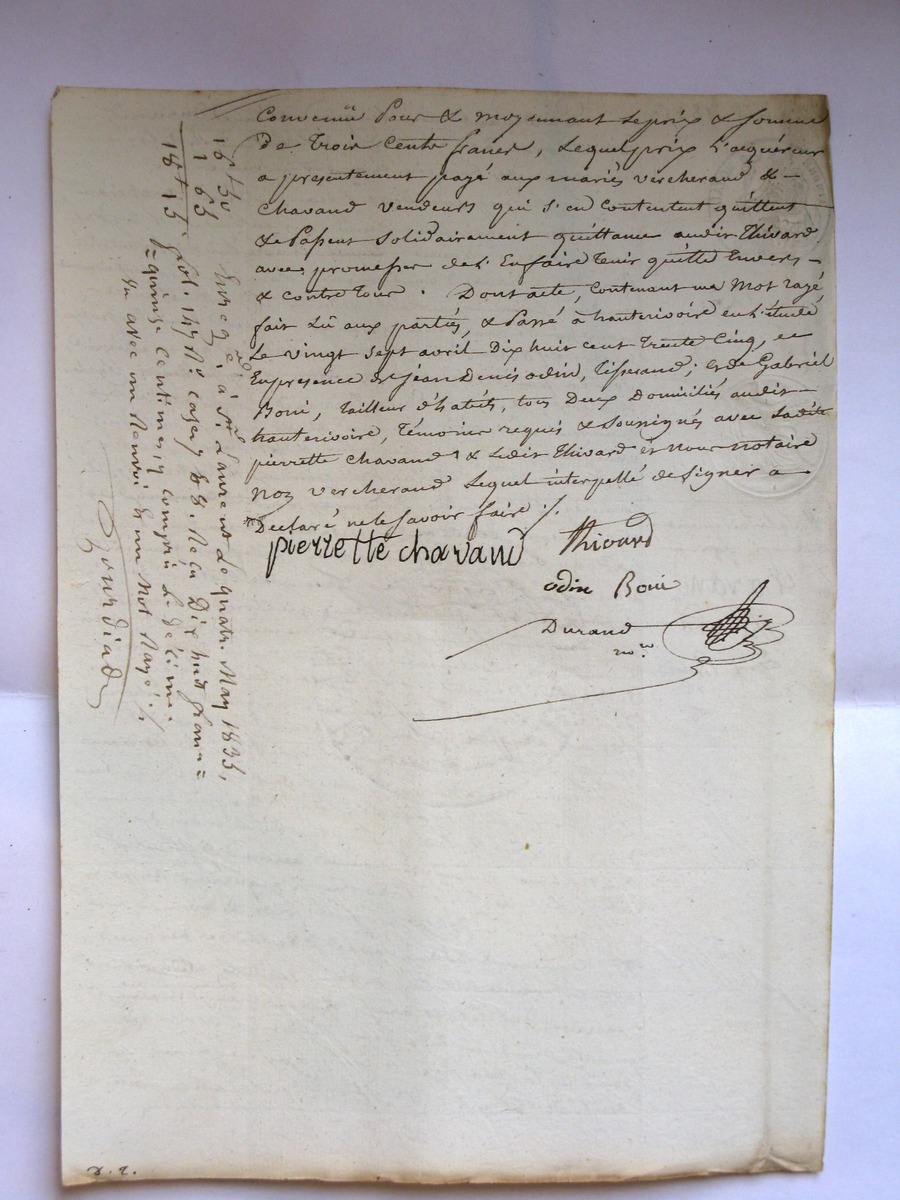 Convenüe Pour & moyennant Le prix & somme
De Trois Cents francs, Lequel prix L'acquéreur
a présentement payé aux mariés vercherand &
chavand vendeurs qui s'en Contentent quittent
& Passent Solidairement quittance audit Thivard
avec promesse de L'En faire Tenir quitte Envers
& contre Tous. Dont acte, contenant un Mot rayé
fait Lû aux parties, & Passé à hauterivoire en L'étude
Le vingt sept avril Dix huit cent Trente Cinq, en
En présence de Jean Denis odin, Tisserand; et de Gabriel
Boni, Tailleur d'habits, tous Deux Domiciliés audit
hauterivoire, Témoins requis & Soussignés avec Ladite
pierrette chavand & Ledit Thivard et Nous Notaire
Non vercherand Lequel interpellé de signer a
Déclaré ne le savoir faire ./.
pierrette chavand Thivard
odin Boni
Durand
nre
16 f 50
1 65
18 f 15
Enreg. é, à St. Laurent Le quatre May 1835,
fol. 147 R° cases 7 & 8. Reçu Dix huit francs
quinze centimes y compris Le décime.
Gourdiad